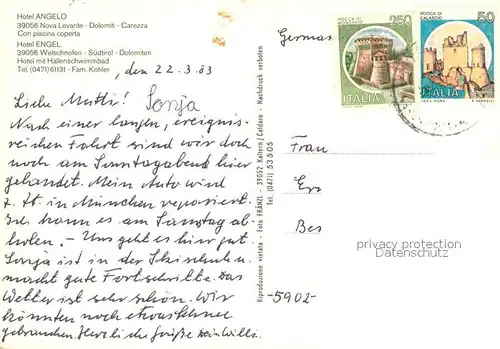 Hotel ANGELO
39056 Nova Levante - Dolomiti - Carezza
Con piscina coperta
Hotel ENGEL
39056 Welschnofen - Südtirol - Dolomiten
Hotel mit Hallenschwimmbad
Tel. (0471) 61131 - Fam. Kohler
, den 22.3.83
Liebe Mutti! Sonja
Nach einer langen, ereignis-
reichen Fahrt sind wir doch
noch am Sonntagabend hier
gelandet. Mein Auto wird
z. Zt. in München repariert.
Ich kann es am Samstag ab-
holen. - Uns geht es hier gut.
Sonja ist in der Skischule u.
macht gute Fortschritte. Das
Wetter ist sehr schön. Wir
könnten noch etwas Schnee
gebrauchen. Herzliche Grüße Dein Willi.
Riproduzione vietata - Foto FRÄNZL - 39052 Kaltern/Caldaro - Nachdruck verboten
Tel. (0471) 53505
German
ROCCA DI
250
ITALIA
ROCCA DI
CALASCIO
50
ITALIA
Frau
Er
Bes
-5902-
PRIVACY protection
Datenschutz